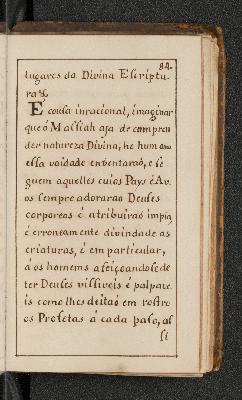 84.
lugares da Divina Escriptu
ra &
E cousa inracional, imaginar
que ó Massiah aja de compren
der natureza Divina, he huma
essa vaidade enventaraõ, e se
guem aquelles cuios Pays é Av.
os sempre adoraraõ Deuses
corporeos é atribuiraõ impia,
é erroneamente divindade as
criaturas, é em particular,
á os homems afeiçoandose de
ter Deuses visiveis é palpave
is como lhes deitaõ em rostro
os Profetas á cada paso, as
si